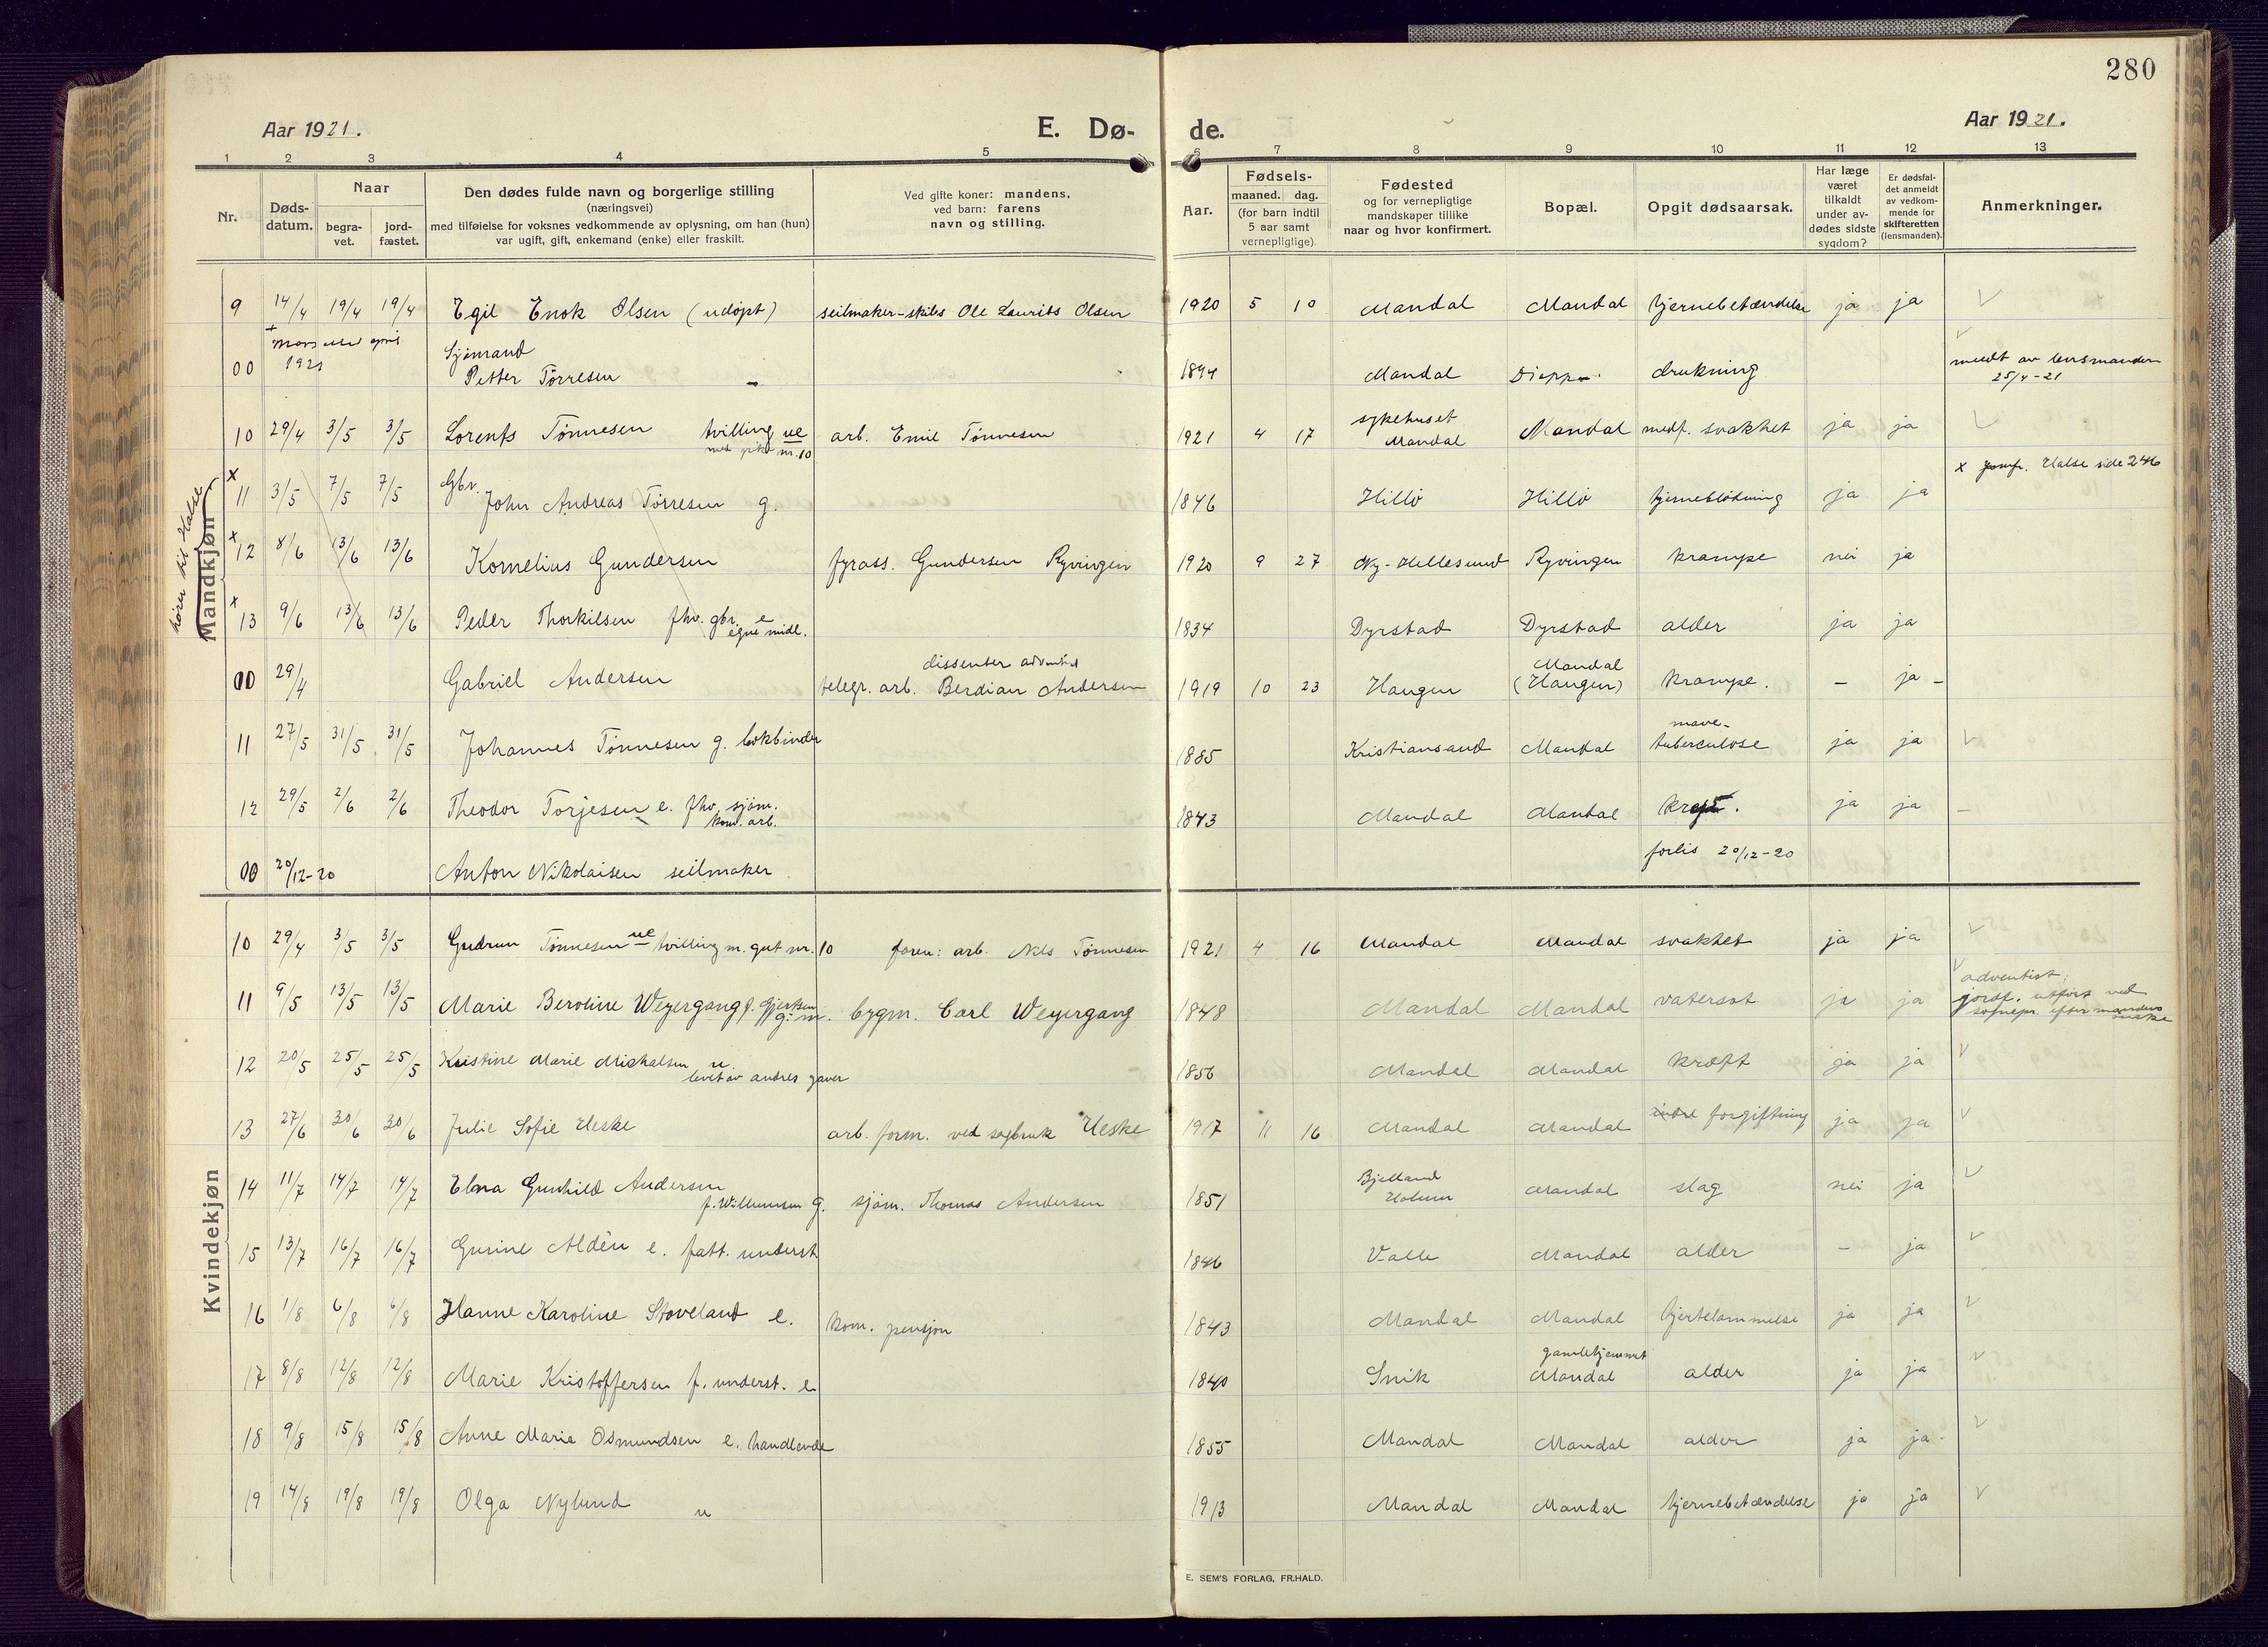 280
Aar 1921. E. Dø- de. Aar 1921.
1 2 3 4 5 6 7 8 9 10 11 12 13
Nr. Døds-datum. Naar begra-vet. jord-fæstet. Den dødes fulde navn og borgerlige stilling (næringsvei) med tilføielse for voksnes vedkommende av oplysning, om han (hun) var ugift, gift, enkemand (enke) eller fraskilt. Ved gifte koner: mandens, ved barn: farens navn og stilling. Aar. Fødsels- maaned. dag. (for barn indtil 5 aar samt vernepligtige). Fødested og for vernepligtige mandskaper tillike naar og hvor konfirmert. Bopæl. Opgit dødsaarsak. Har læge været tilkaldt under av-dødes sidste sygdom? Er dødsfal-det anmeldt av vedkom-mende for skifteretten (lensmanden). Anmerkninger.
Mandkjøn
hører til Halse
9 14/4 19/4 19/4 Egil Enok Olsen (udøpt) seilmaker-skibs Ole Laurits Olsen 1920 5 10 Mandal Mandal hjernebetændelse ja ja
00 + mars eller april 1921 Sjømand Petter Tørresen - 1894 Mandal Dieppe. drukning meldt av lensmanden 25/4-21
10 29/4 3/5 3/5 Lorents Tønnesen tvilling ue med pike nr. 10 arb. Emil Tønnesen 1921 4 17 sykehuset Mandal Mandal medf. svakhet ja ja
x 11 3/5 7/5 7/5 Gbr. John Andreas Tørresen g. 1846 Hillø Hillø hjerneblødning ja ja x jomfr. Halse side 246
x 12 8/6 13/6 13/6 Kornelius Gundersen fyrass. Gundersen Ryvingen 1920 9 27 Ny-Hellesund Ryvingen krampe nei ja
x 13 9/6 13/6 13/6 Peder Thorkilsen fhv. gbr. e egne midl. 1834 Dyrstad Dyrstad alder ja ja
00 29/4 Gabriel Andersen dissenter adventist telegr. arb. Berdian Andersen 1919 10 23 Haugen Mandal (Haugen) krampe. - ja -
11 27/5 31/5 31/5 Johannes Tønnesen g. bokbinder 1885 Kristiansand Mandal mave-tuberculose ja ja
12 29/5 2/6 2/6 Theodor Torjesen e. fhv. sjøm. kom. arb. 1843 Mandal Mandal ja ja -
00 20/12-20 Anton Nikolaisen seilmaker forlis 20/12-20
Kvindekjøn
10 29/4 3/5 3/5 Gudrun Tønnesen ue tvilling m. gut nr. 10 faren: arb. Nils Tønnesen 1921 4 16 Mandal Mandal svakhet ja ja
11 9/5 13/5 13/5 Marie Beroline Weyergang f. Gjertsen g. m. bygm. Carl Weyergang 1848 Mandal Mandal vatersot ja ja adventist; jordf. utført ved sognepr. efter mandens ønske
12 20/5 25/5 25/5 Kristine Marie Michalsen u. levet av andres gaver 1856 Mandal Mandal kræft ja ja
13 27/6 30/6 30/6 Julie Sofie Heske arb. form. ved sagbruk Heske 1917 11 16 Mandal Mandal indre forgiftning ja ja
14 11/7 14/7 14/7 Elena Gunhild Andersen f. Willumsen g. sjøm. Thomas Andersen 1851 Bjelland Holum Mandal slag nei ja
15 13/7 16/7 16/7 Gurine Aldén e. fatt. underst. 1846 Valle Mandal alder - ja
16 1/8 6/8 6/8 Hanne Karoline Stoveland e. kom. pensjon 1843 Mandal Mandal hjertelammelse ja ja
17 8/8 12/8 12/8 Marie Kristoffersen f. underst. e 1840 Snik gamlehjemmet Mandal alder ja ja
18 9/8 15/8 15/8 Anne Marie Osmundsen e. handlende 1855 Mandal Mandal alder ja ja
19 14/8 19/8 19/8 Olga Nylund u 1913 Mandal Mandal hjernebetændelse ja ja
E. SEM'S FORLAG, FR.HALD.